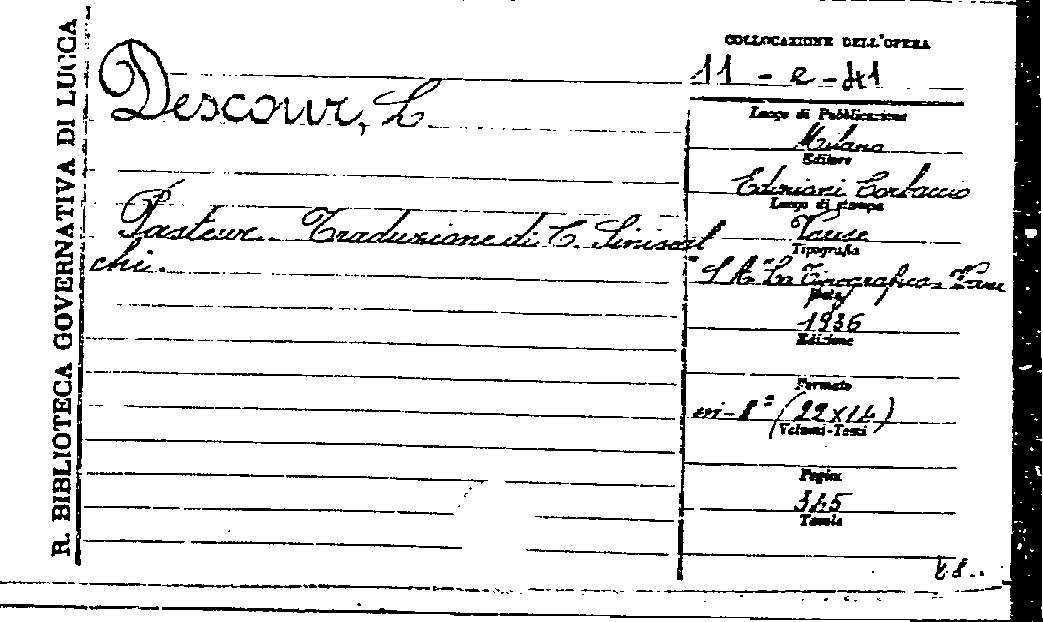 R. BIBLIOTECA GOVERNATIVA DI LUCCA
Descour, L.
Pasteur. Traduzione di C. Siniscal
chi.
COLLOCAZIONE DELL'OPERA
11 - e - 41
Luogo di Pubblicazione
Milano
Editore
Edizioni Corbaccio
Luogo di stampa
Varese
Tipografia
"S. A. "La Tipografica Varese
Data
1936
Edizione
Formato
in-8° (22x14)
Volumi-Tomi
Pagine
345
Tavole